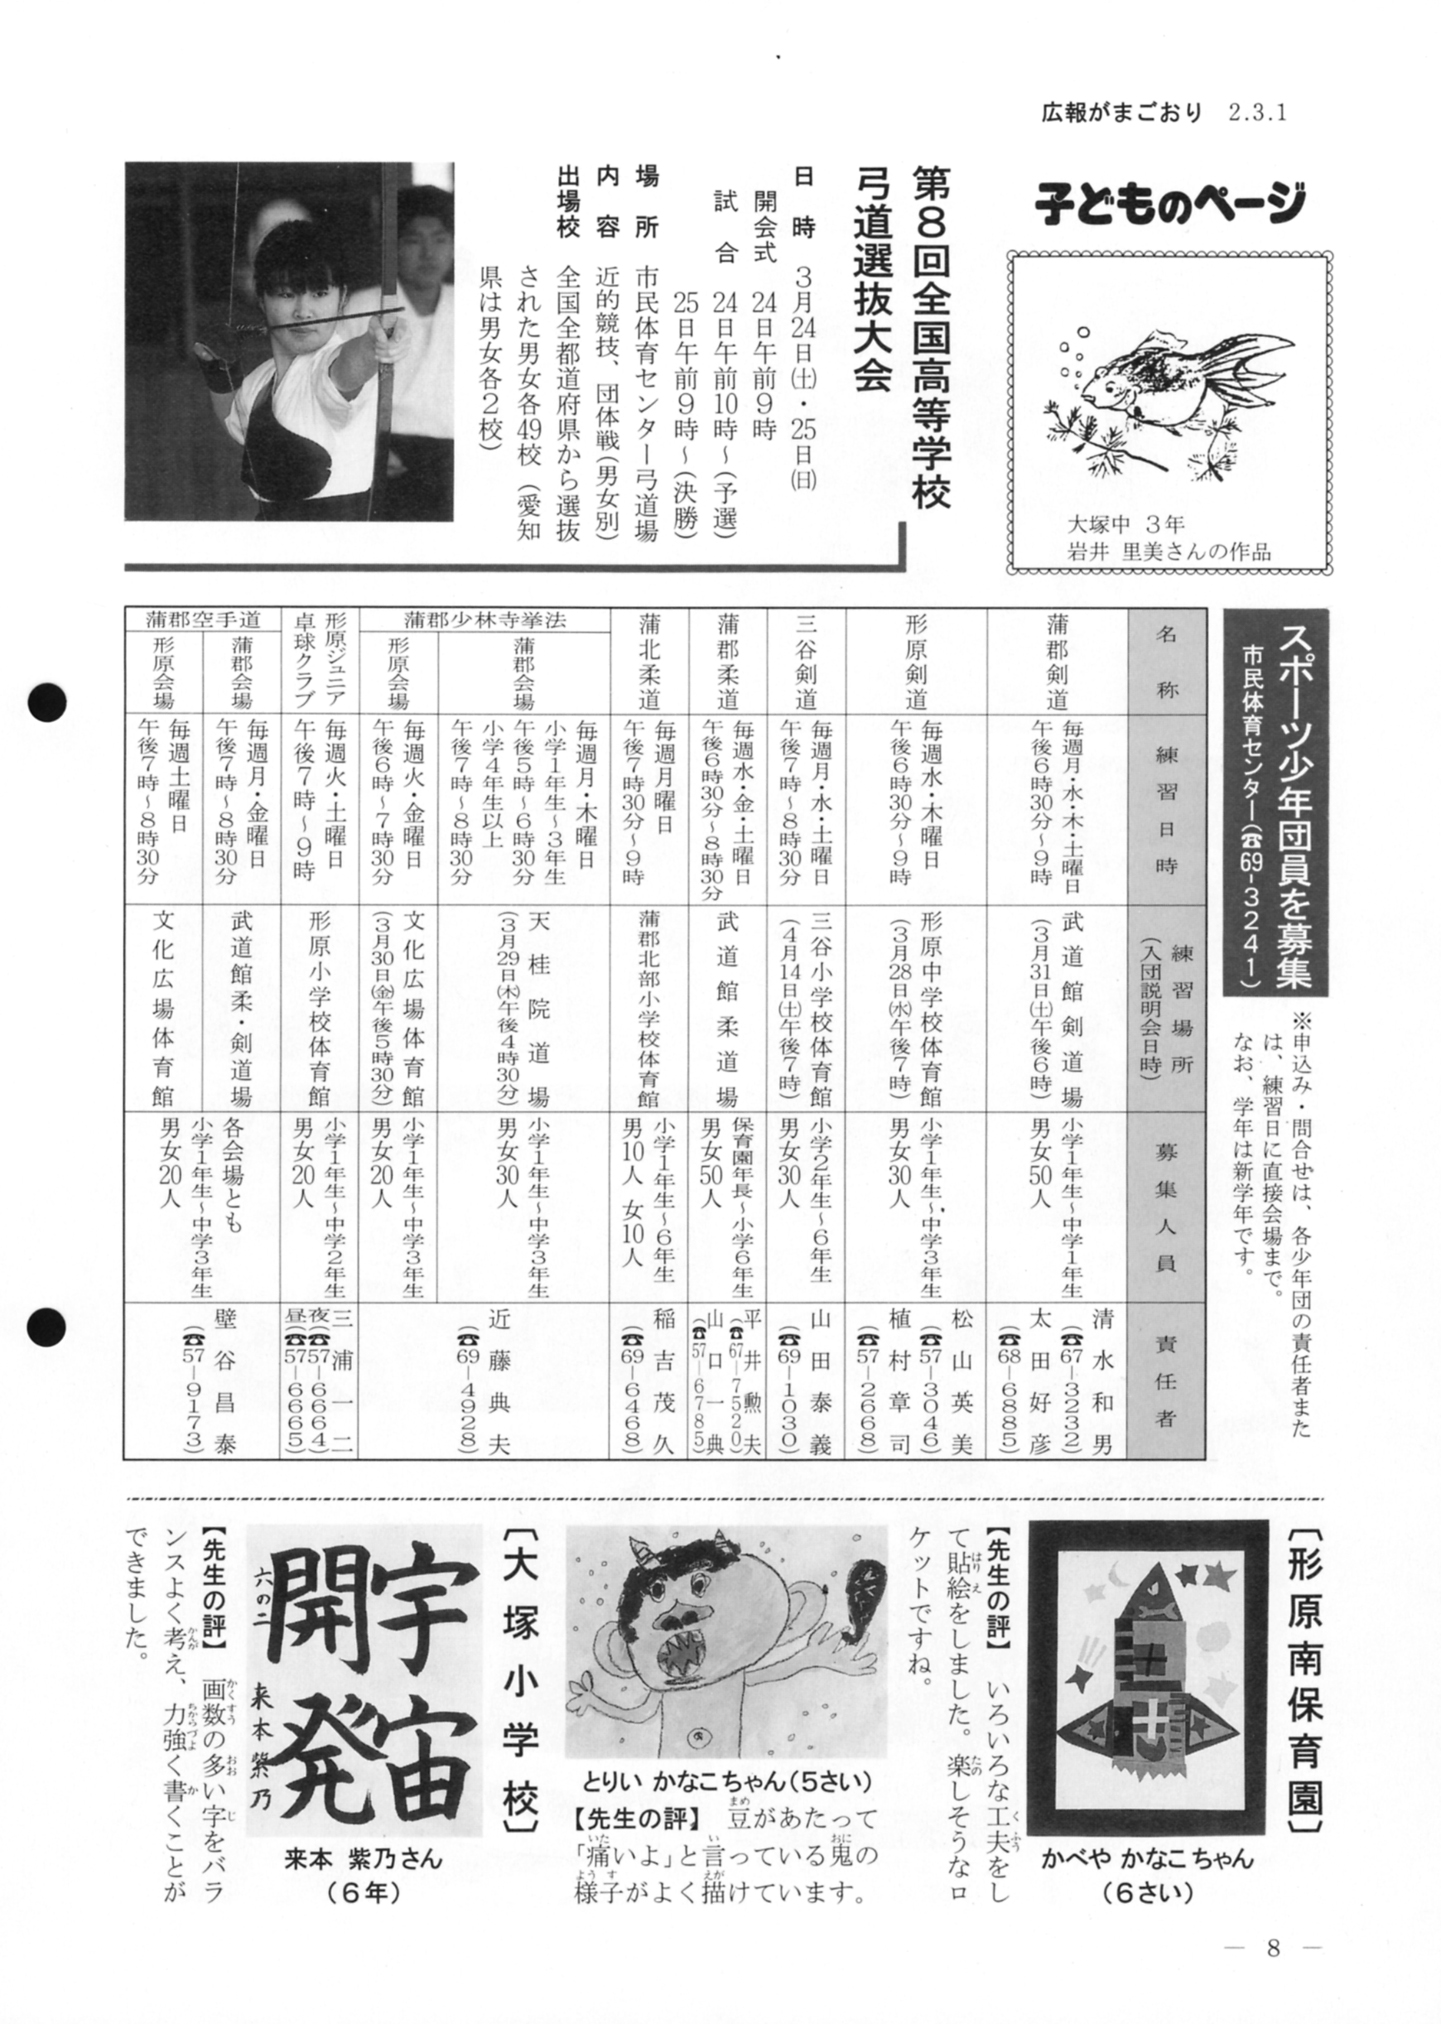 広報がまごおり 2.3.1
子どものページ
大塚中 3年
岩井 里美さんの作品
第8回全国高等学校
弓道選抜大会
日時 3月24日(土)・25日(日)
開会式 24日午前9時
試合 24日午前10時～(予選)
25日午前9時～(決勝)
場所 市民体育センター弓道場
内容 近的競技、団体戦(男女別)
出場校 全国全都道府県から選抜
された男女各49校(愛知
県は男女各2校)
スポーツ少年団員を募集
市民体育センター(☎69-3241)
※申込み・問合せは、各少年団の責任者また
は、練習日に直接会場まで。
なお、学年は新学年です。
名称
練習日時
練習場所
(入団説明会日時)
募集人員
責任者
蒲郡剣道
毎週月・水・木・土曜日
午後6時30分～9時
武道館剣道場
(3月31日(土)午後6時)
小学1年生～中学1年生
男女50人
清水和男
(☎67-3232)
太田好彦
(☎68-6885)
形原剣道
毎週水・木曜日
午後6時30分～9時
形原中学校体育館
(3月28日(水)午後7時)
小学1年生～中学3年生
男女30人
松山英美
(☎57-3046)
植村章司
(☎57-2668)
三谷剣道
毎週月・水・土曜日
午後7時～8時30分
三谷小学校体育館
(4月14日(土)午後7時)
小学2年生～6年生
男女30人
山田泰義
(☎69-1030)
蒲郡柔道
毎週水・金・土曜日
午後6時30分～8時30分
武道館柔道場
保育園年長～小学6年生
男女50人
平井勲夫
(☎67-7520)
山口一典
(☎57-6785)
蒲北柔道
毎週月曜日
午後7時30分～9時
蒲郡北部小学校体育館
小学1年生～6年生
男10人 女10人
稲吉茂久
(☎69-6468)
蒲郡少林寺拳法
蒲郡会場
毎週月・木曜日
小学1年生～3年生
午後5時～6時30分
小学4年生以上
午後7時～8時30分
天桂院道場
(3月29日(木)午後4時30分)
小学1年生～中学3年生
男女30人
近藤典夫
(☎69-4928)
形原会場
毎週火・金曜日
午後6時～7時30分
文化広場体育館
(3月30日(金)午後5時30分)
小学1年生～中学3年生
男女20人
形原ジュニア
卓球クラブ
毎週火・土曜日
午後7時～9時
形原小学校体育館
小学1年生～中学2年生
男女20人
三浦一二
夜(☎57-6664)
昼(☎57-6665)
蒲郡空手道
蒲郡会場
毎週月・金曜日
午後7時～8時30分
武道館柔・剣道場
各会場とも
小学1年生～中学3年生
男女20人
壁谷昌泰
(☎57-9173)
形原会場
毎週土曜日
午後7時～8時30分
文化広場体育館
〔形原南保育園〕
かべや かなこちゃん
(6さい)
【先生の評】 いろいろな工夫をし
て貼絵をしました。楽しそうなロ
ケットですね。
とりい かなこちゃん(5さい)
【先生の評】 豆があたって
「痛いよ」と言っている鬼の
様子がよく描けています。
〔大塚小学校〕
宇宙
開発
六の二 来本紫乃
来本 紫乃さん
(6年)
【先生の評】 画数の多い字をバラ
ンスよく考え、力強く書くことが
できました。
― 8 ―